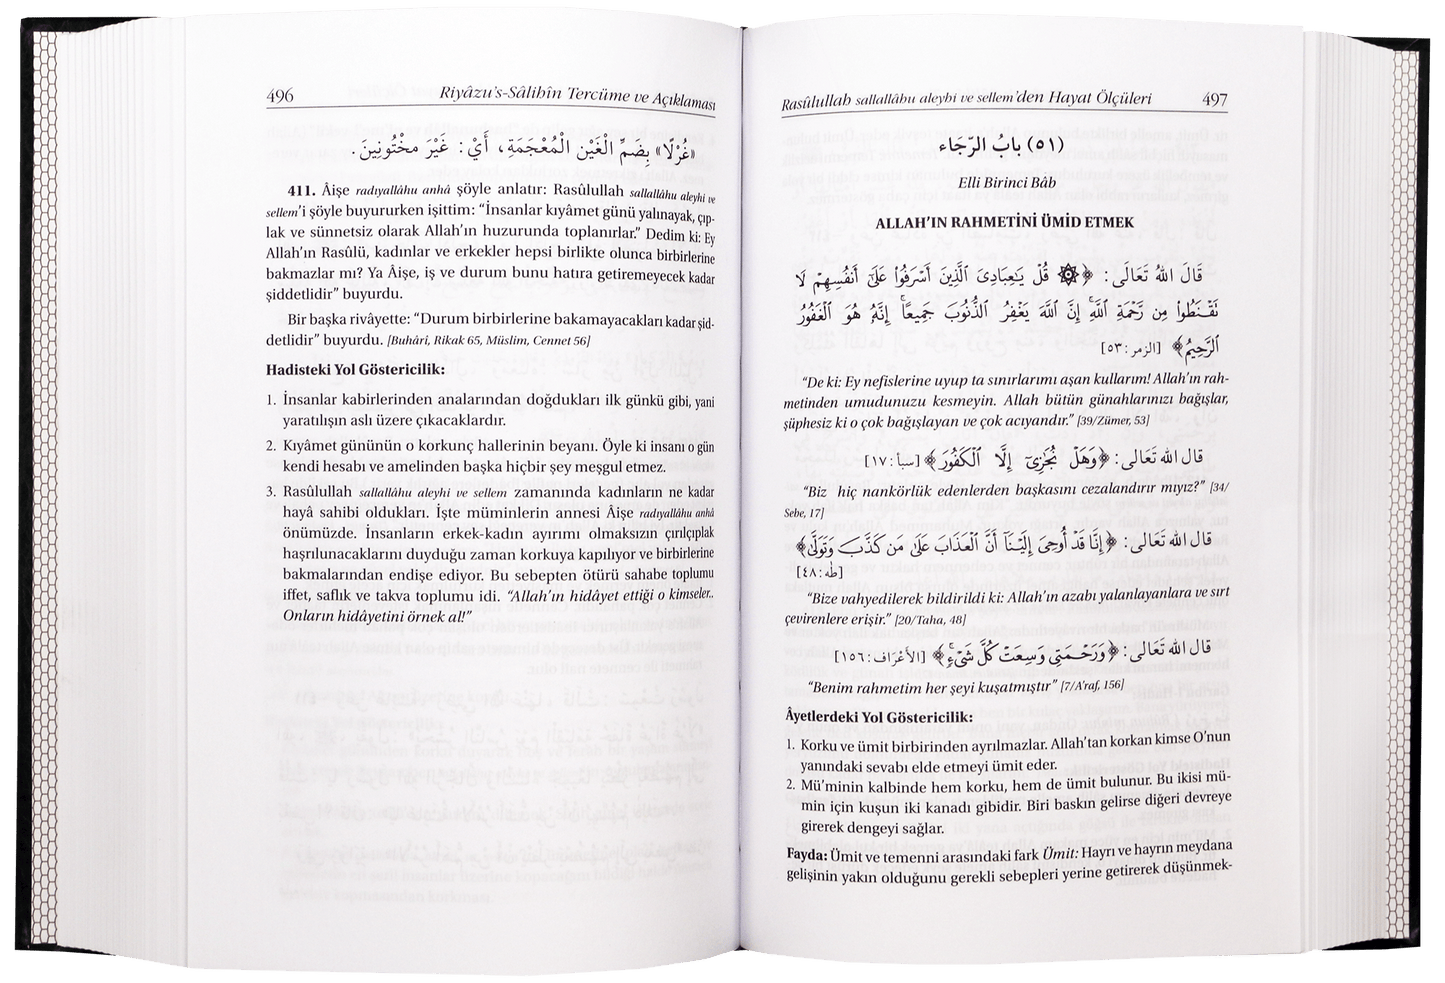 496
Riyâzu's-Sâlihîn Tercüme ve Açıklaması
«غُرْلًا» بِضَمِّ الْغَيْنِ الْمُعْجَمَةِ، أَيْ: غَيْرَ مَخْتُونِينَ.
411. Âişe radıyallâhu anhâ şöyle anlatır: Rasûlullah sallallâhu aleyhi ve
sellem'i şöyle buyururken işittim: “İnsanlar kıyâmet günü yalınayak, çıp-
lak ve sünnetsiz olarak Allah'ın huzurunda toplanırlar.” Dedim ki: Ey
Allah'ın Rasûlü, kadınlar ve erkekler hepsi birlikte olunca birbirlerine
bakmazlar mı? Ya Âişe, iş ve durum bunu hatıra getiremeyecek kadar
şiddetlidir” buyurdu.
Bir başka rivâyette: “Durum birbirlerine bakamayacakları kadar şid-
detlidir” buyurdu. [Buhâri, Rikak 65, Müslim, Cennet 56]
Hadisteki Yol Göstericilik:
1. İnsanlar kabirlerinden analarından doğdukları ilk günkü gibi, yani
yaratılışın aslı üzere çıkacaklardır.
2. Kıyâmet gününün o korkunç hallerinin beyanı. Öyle ki insanı o gün
kendi hesabı ve amelinden başka hiçbir şey meşgul etmez.
3. Rasûlullah sallallâhu aleyhi ve sellem zamanında kadınların ne kadar
hayâ sahibi oldukları. İşte müminlerin annesi Âişe radıyallâhu anhâ
önümüzde. İnsanların erkek-kadın ayırımı olmaksızın çırılçıplak
haşrılunacaklarını duyduğu zaman korkuya kapılıyor ve birbirlerine
bakmalarından endişe ediyor. Bu sebepten ötürü sahabe toplumu
iffet, saflık ve takva toplumu idi. “Allah'ın hidâyet ettiği o kimseler..
Onların hidâyetini örnek al!”
Rasûlullah sallallâhu aleyhi ve sellem'den Hayat Ölçüleri
497
(٥١) بابُ الرَّجَاء
Elli Birinci Bâb
ALLAH'IN RAHMETİNİ ÜMİD ETMEK
قَالَ اللهُ تَعَالَى: ﴿۞ قُلْ يَٰعِبَادِىَ ٱلَّذِينَ أَسْرَفُوا۟ عَلَىٰٓ أَنفُسِهِمْ لَا
تَقْنَطُوا۟ مِن رَّحْمَةِ ٱللَّهِ ۚ إِنَّ ٱللَّهَ يَغْفِرُ ٱلذُّنُوبَ جَمِيعًا ۚ إِنَّهُۥ هُوَ ٱلْغَفُورُ
ٱلرَّحِيمُ﴾ [الزمر: ٥٣]
“De ki: Ey nefislerine uyup ta sınırlarımı aşan kullarım! Allah'ın rah-
metinden umudunuzu kesmeyin. Allah bütün günahlarınızı bağışlar,
şüphesiz ki o çok bağışlayan ve çok acıyandır.” [39/Zümer, 53]
قال الله تعَالى: ﴿وَهَلْ نُجَٰزِىٓ إِلَّا ٱلْكَفُورَ﴾ [سبأ: ١٧]
“Biz hiç nankörlük edenlerden başkasını cezalandırır mıyız?” [34/
Sebe, 17]
قال الله تَعالى: ﴿إِنَّا قَدْ أُوحِىَ إِلَيْنَآ أَنَّ ٱلْعَذَابَ عَلَىٰ مَن كَذَّبَ وَتَوَلَّىٰ﴾
[طه: ٤٨]
“Bize vahyedilerek bildirildi ki: Allah'ın azabı yalanlayanlara ve sırt
çevirenlere erişir.” [20/Taha, 48]
قال الله تَعالى: ﴿وَرَحْمَتِى وَسِعَتْ كُلَّ شَىْءٍ ۚ﴾ [الأعْرَاف: ١٥٦]
“Benim rahmetim her şeyi kuşatmıştır” [7/A'raf, 156]
Âyetlerdeki Yol Göstericilik:
1. Korku ve ümit birbirinden ayrılmazlar. Allah'tan korkan kimse O'nun
yanındaki sevabı elde etmeyi ümit eder.
2. Mü'minin kalbinde hem korku, hem de ümit bulunur. Bu ikisi mü-
min için kuşun iki kanadı gibidir. Biri baskın gelirse diğeri devreye
girerek dengeyi sağlar.
Fayda: Ümit ve temenni arasındaki fark Ümit: Hayrı ve hayrın meydana
gelişinin yakın olduğunu gerekli sebepleri yerine getirerek düşünmek-